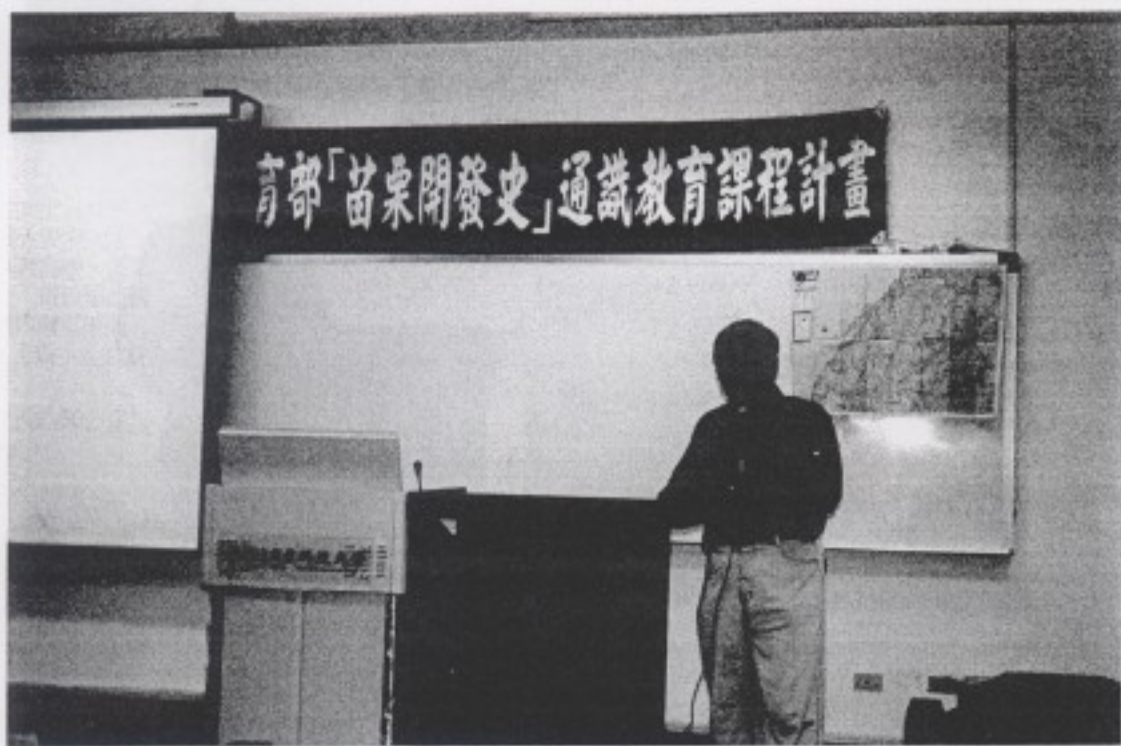 育部「苗栗開發史」通識教育課程計畫